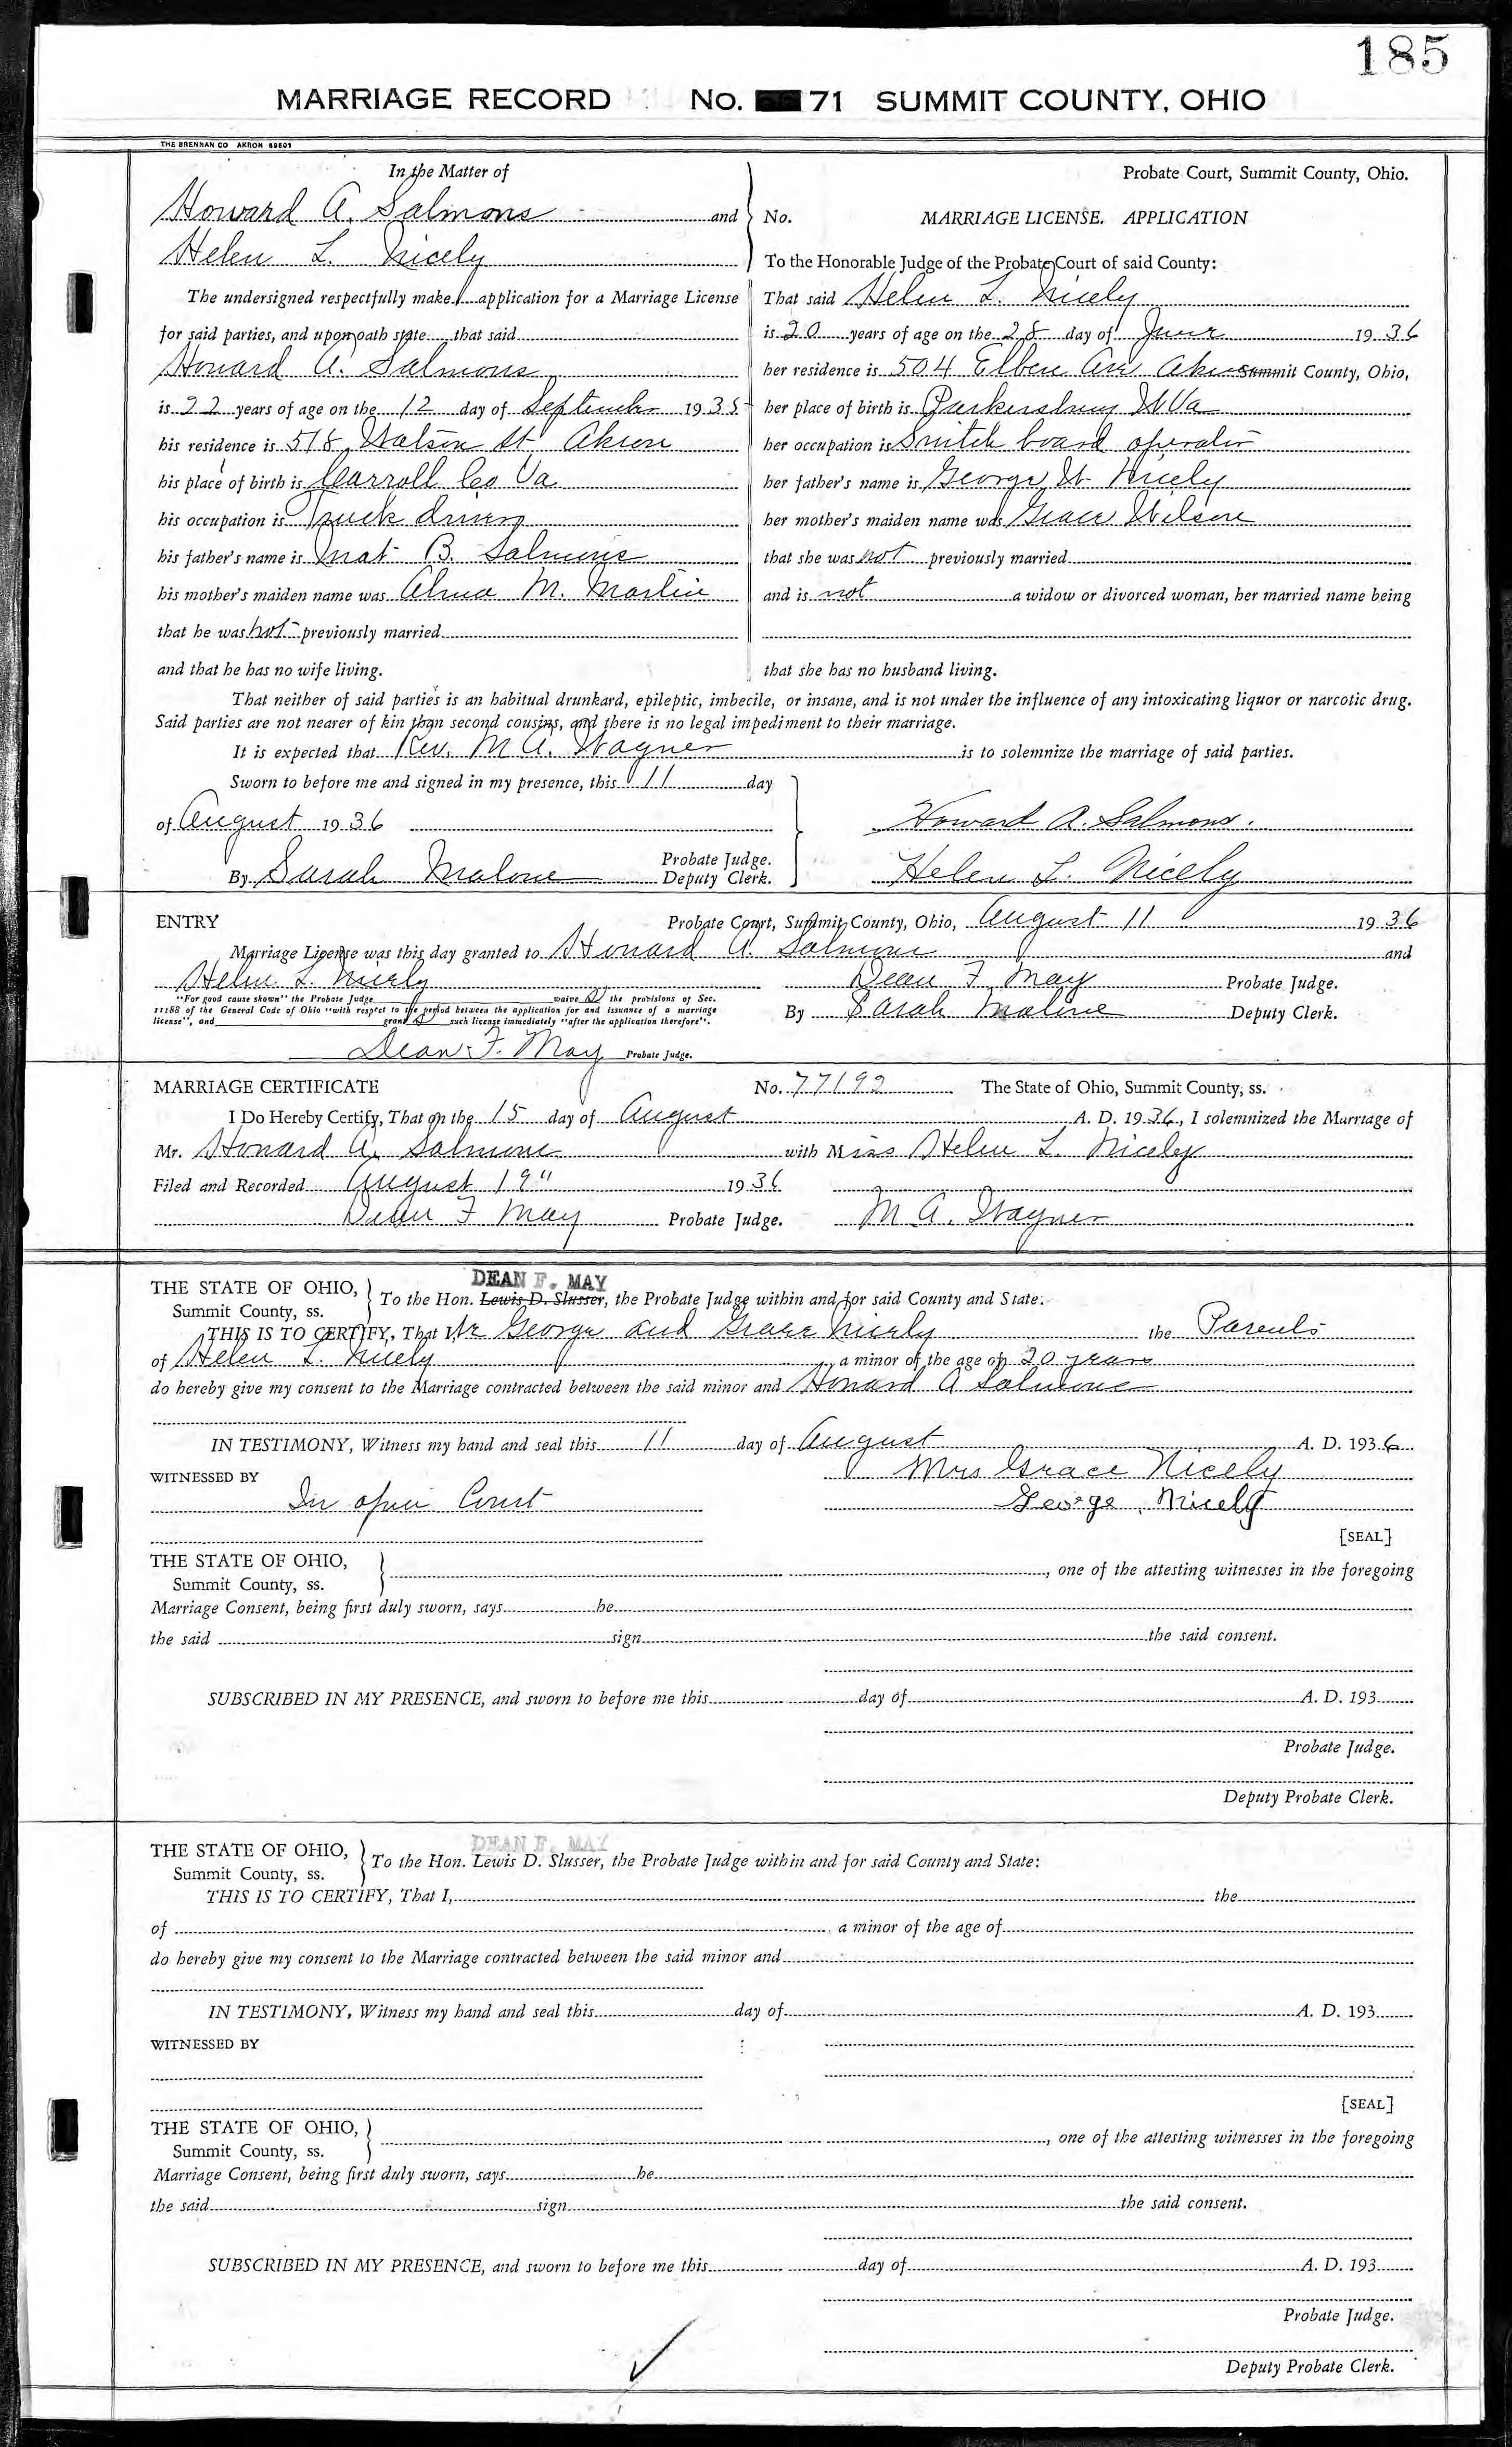 185
MARRIAGE RECORD No. 71 SUMMIT COUNTY, OHIO
THE BRENNAN CO AKRON 89601
In the Matter of
Howard A. Salmons and
Helen L. Nicely
The undersigned respectfully make application for a Marriage License
for said parties, and upon oath state that said
Howard A. Salmons
is 22 years of age on the 12 day of September 1935
his residence is 518 Watson St Akron
his place of birth is Carroll Co Va
his occupation is Truck driver
his father's name is Mat B. Salmons
his mother's maiden name was Alma M. Martin
that he was not previously married
and that he has no wife living.
Probate Court, Summit County, Ohio.
No. MARRIAGE LICENSE. APPLICATION
To the Honorable Judge of the Probate Court of said County:
That said Helen L. Nicely
is 20 years of age on the 28 day of June 1936
her residence is 504 Av Summit County, Ohio,
her place of birth is Parkersburg W Va
her occupation is Switch board operator
her father's name is George W. Nicely
her mother's maiden name was Grace Wilson
that she was not previously married
and is not a widow or divorced woman, her married name being
that she has no husband living.
That neither of said parties is an habitual drunkard, epileptic, imbecile, or insane, and is not under the influence of any intoxicating liquor or narcotic drug.
Said parties are not nearer of kin than second cousins, and there is no legal impediment to their marriage.
It is expected that Rev. M. A. Wagner is to solemnize the marriage of said parties.
Sworn to before me and signed in my presence, this 11 day
of August 1936
Probate Judge.
By Sarah Malone Deputy Clerk.
Howard A. Salmons.
Helen L. Nicely
ENTRY Probate Court, Summit County, Ohio, August 11 1936
Marriage License was this day granted to Howard A. Salmons and
Helen L. Nicely Dean F. May Probate Judge.
"For good cause shown" the Probate Judge waive s the provisions of Sec.
11188 of the General Code of Ohio "with respect to the period between the application for and issuance of a marriage
license", and grant s such license immediately "after the application therefore".
By Sarah Malone Deputy Clerk.
Dean F. May Probate Judge.
MARRIAGE CERTIFICATE No. 77192 The State of Ohio, Summit County, ss.
I Do Hereby Certify, That on the 15 day of August A. D. 1936, I solemnized the Marriage of
Mr. Howard A. Salmons with Miss Helen L. Nicely
Filed and Recorded August 19" 1936
Dean F May Probate Judge. M. A. Wagner
DEAN F. MAY
THE STATE OF OHIO, To the Hon. Lewis D. Slusser, the Probate Judge within and for said County and State:
Summit County, ss.
THIS IS TO CERTIFY, That I, We George and Grace Nicely the Parents
of Helen L. Nicely a minor of the age of 20 years
do hereby give my consent to the Marriage contracted between the said minor and Howard A Salmons
IN TESTIMONY, Witness my hand and seal this 11 day of August A. D. 1936
WITNESSED BY Mrs Grace Nicely
In open Court George Nicely
[SEAL]
THE STATE OF OHIO,
Summit County, ss. , one of the attesting witnesses in the foregoing
Marriage Consent, being first duly sworn, says he
the said sign the said consent.
SUBSCRIBED IN MY PRESENCE, and sworn to before me this day of A. D. 193
Probate Judge.
Deputy Probate Clerk.
DEAN F. MAY
THE STATE OF OHIO, To the Hon. Lewis D. Slusser, the Probate Judge within and for said County and State:
Summit County, ss.
THIS IS TO CERTIFY, That I, the
of a minor of the age of
do hereby give my consent to the Marriage contracted between the said minor and
IN TESTIMONY, Witness my hand and seal this day of A. D. 193
WITNESSED BY
[SEAL]
THE STATE OF OHIO,
Summit County, ss. , one of the attesting witnesses in the foregoing
Marriage Consent, being first duly sworn, says he
the said sign the said consent.
SUBSCRIBED IN MY PRESENCE, and sworn to before me this day of A. D. 193
Probate Judge.
Deputy Probate Clerk.